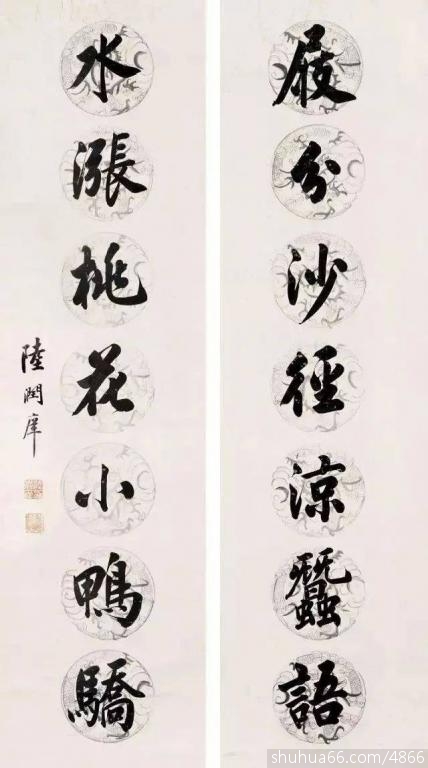 屐分沙徑涼蠶語
水漲桃花小鴨驕
陸潤庠
shuhua66.com/4866